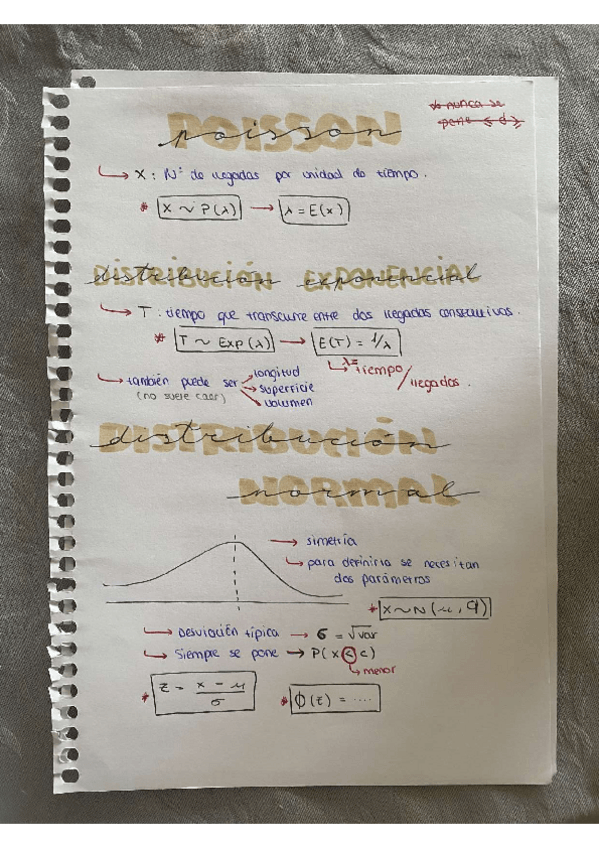 * nunca se
pone ≤ ó ≥
POISSON
poisson
X : Nº de llegadas por unidad de tiempo.
* X ~ P(λ) → λ = E(x)
DISTRIBUCIÓN EXPONENCIAL
distribución exponencial
T : tiempo que transcurre entre dos llegadas consecutivas.
* T ~ Exp(λ) → E(T) = 1/λ
λ = tiempo/llegadas.
también puede ser
(no suele caer)
longitud
superficie
volumen
DISTRIBUCIÓN
distribución
NORMAL
normal
→ simetría
para definirla se necesitan
dos parámetros
* X ~ N(μ, σ)
Desviación típica → σ = √var
Siempre se pone → P(x < c)
menor
* z = x - μ / σ
* Φ(z) = ....